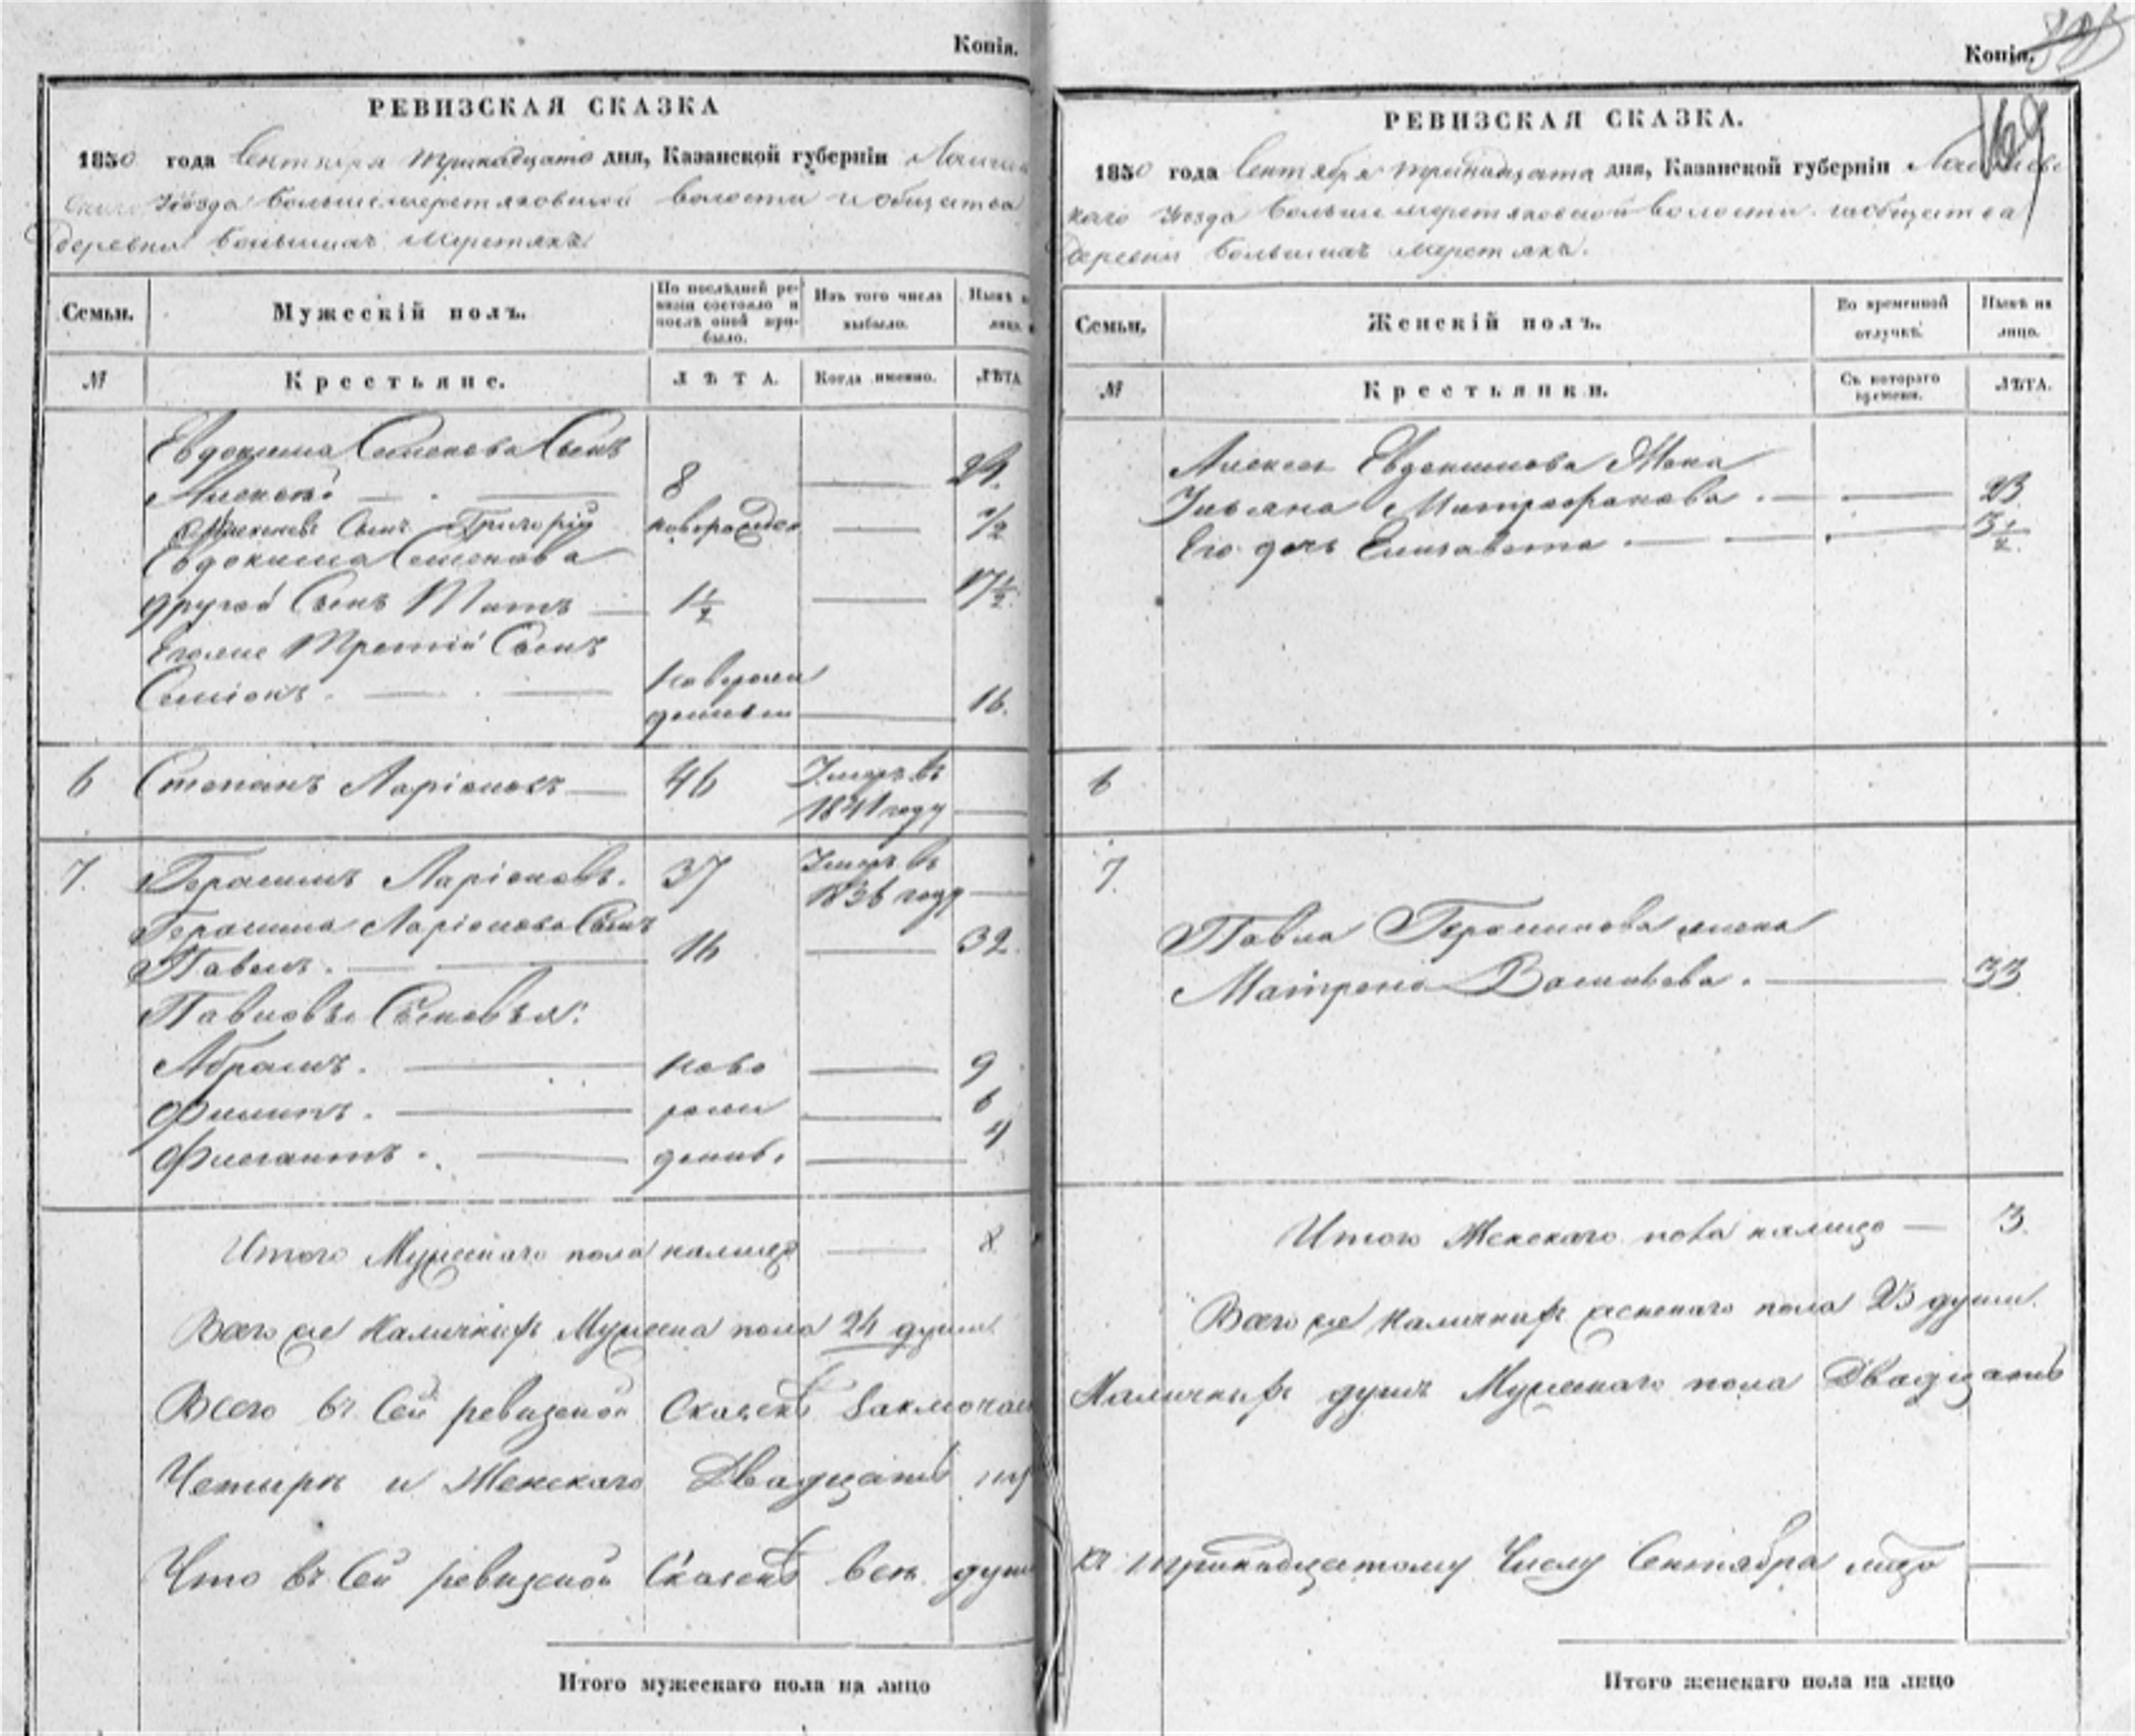 Копія.
РЕВИЗСКАЯ СКАЗКА
1850 года Сентября тринадцато дня, Казанской губерніи Лаишев
скаго Уѣзда Большемеретяковской волости и общества
деревни Большихъ Меретякъ
Семьи.
Мужескій полъ.
По послѣдней ре-
визіи состояло и
послѣ оной при-
было.
Изъ того числа
выбыло.
Нынѣ н
лицо.
№
Крестьяне.
ЛѢТА.
Когда именно.
ЛѢТА
Евдокима Семенова Сынъ
Алексѣй 8 24.
Алексѣевъ Сынъ Григорій новорожден 1/2
Евдокима Семенова
другой Сынъ Титъ 1 1/2 17 1/2
Егоже Третій Сынъ
Семіонъ. новорож
денный 16.
6 Степанъ Ларіоновъ 46 Умеръ въ
1841 году
7. Герасимъ Ларіоновъ. 37 Умеръ въ
1836 году
Герасима Ларіонова Сынъ
Павелъ. 16 32.
Павловы Сыновья:
Абрамъ. ново 9
Филипъ. рож 6
Флегантъ. денны. 4
Итого Мужескаго пола налицо 8
Всего же Наличныхъ Мужеска пола 24 души
Всего въ Сей ревизской Сказкѣ Заключае
Четыре и Женскаго Двадцать
Что въ Сей ревизской Сказкѣ всѣ души
Итого мужескаго пола на лицо
Копія.
169
РЕВИЗСКАЯ СКАЗКА.
1850 года Сентября тринадцата дня, Казанской губерніи Лаишевс
каго Уѣзда Большемеретяковской волости и общества
деревни Большихъ Меретякъ.
Семьи,
Женскій полъ.
Во временной
отлучкѣ.
Нынѣ на
лицо.
№
Крестьянки.
Съ котораго
времени.
ЛѢТА.
Алексея Евдокимова Жена
Ульяна Митрофанова. 23
Его дочь Елизавета 3 1/2.
6
7.
Павла Герасимова жена
Матрена Васильева. 33
Итого Женскаго пола налицо 3.
Всего же Наличныхъ женскаго пола 23 души.
Наличныхъ душъ Мужескаго пола Двадцать
къ тринадцатому Числу Сентября
Итого женскаго пола на лицо